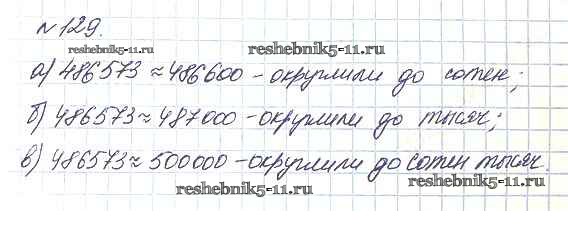 №129.
reshebnik5-11.ru
reshebnik5-11.ru
а) 486573≈486600 - округлили до сотен;
б) 486573≈487000 - округлили до тысяч;
в) 486573≈500000 - округлили до сотен тысяч.
reshebnik5-11.ru
reshebnik5-11.ru